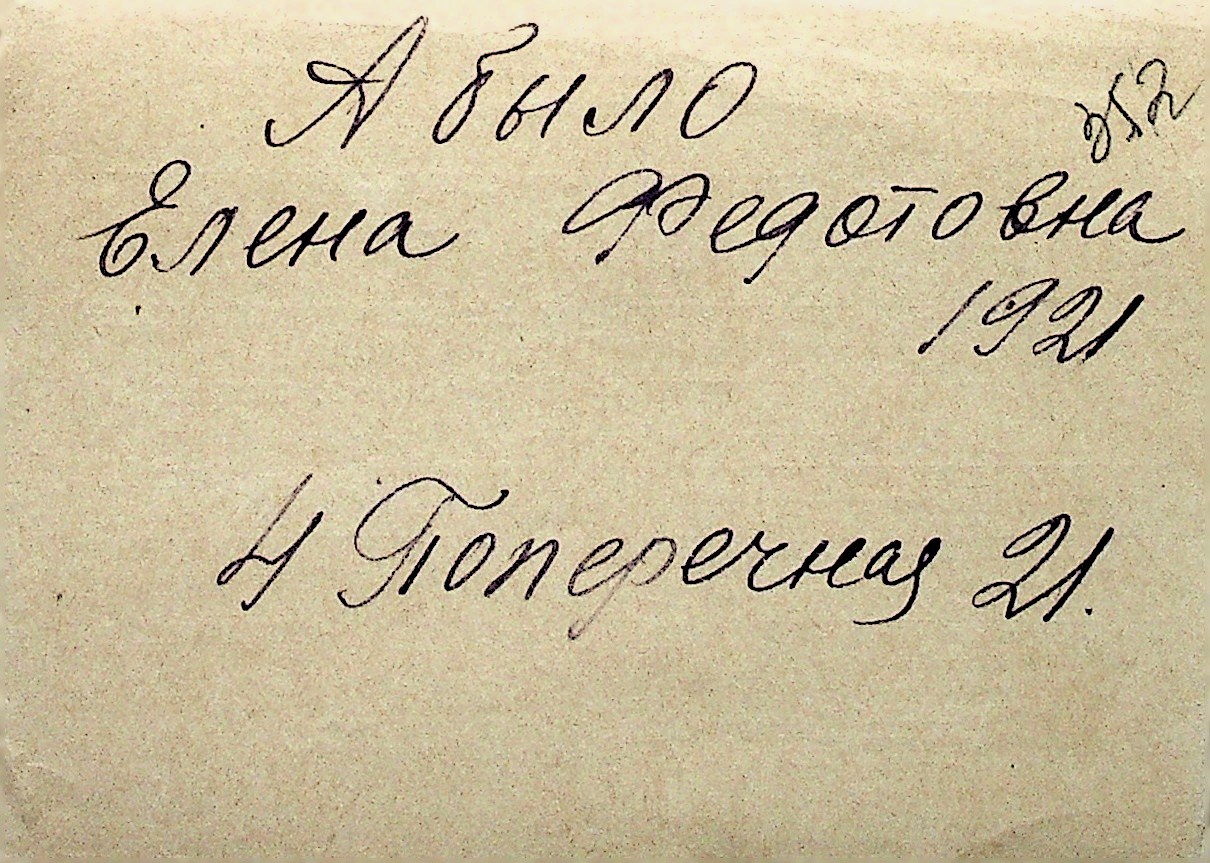 Абыло
Елена Федотовна
1921
4 Поперечная 21.